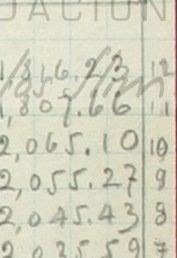 DACION
1,816.23 12
1,807.66 11
2,065.10 10
2,055.27 9
2,045.43 8
2,035.59 7